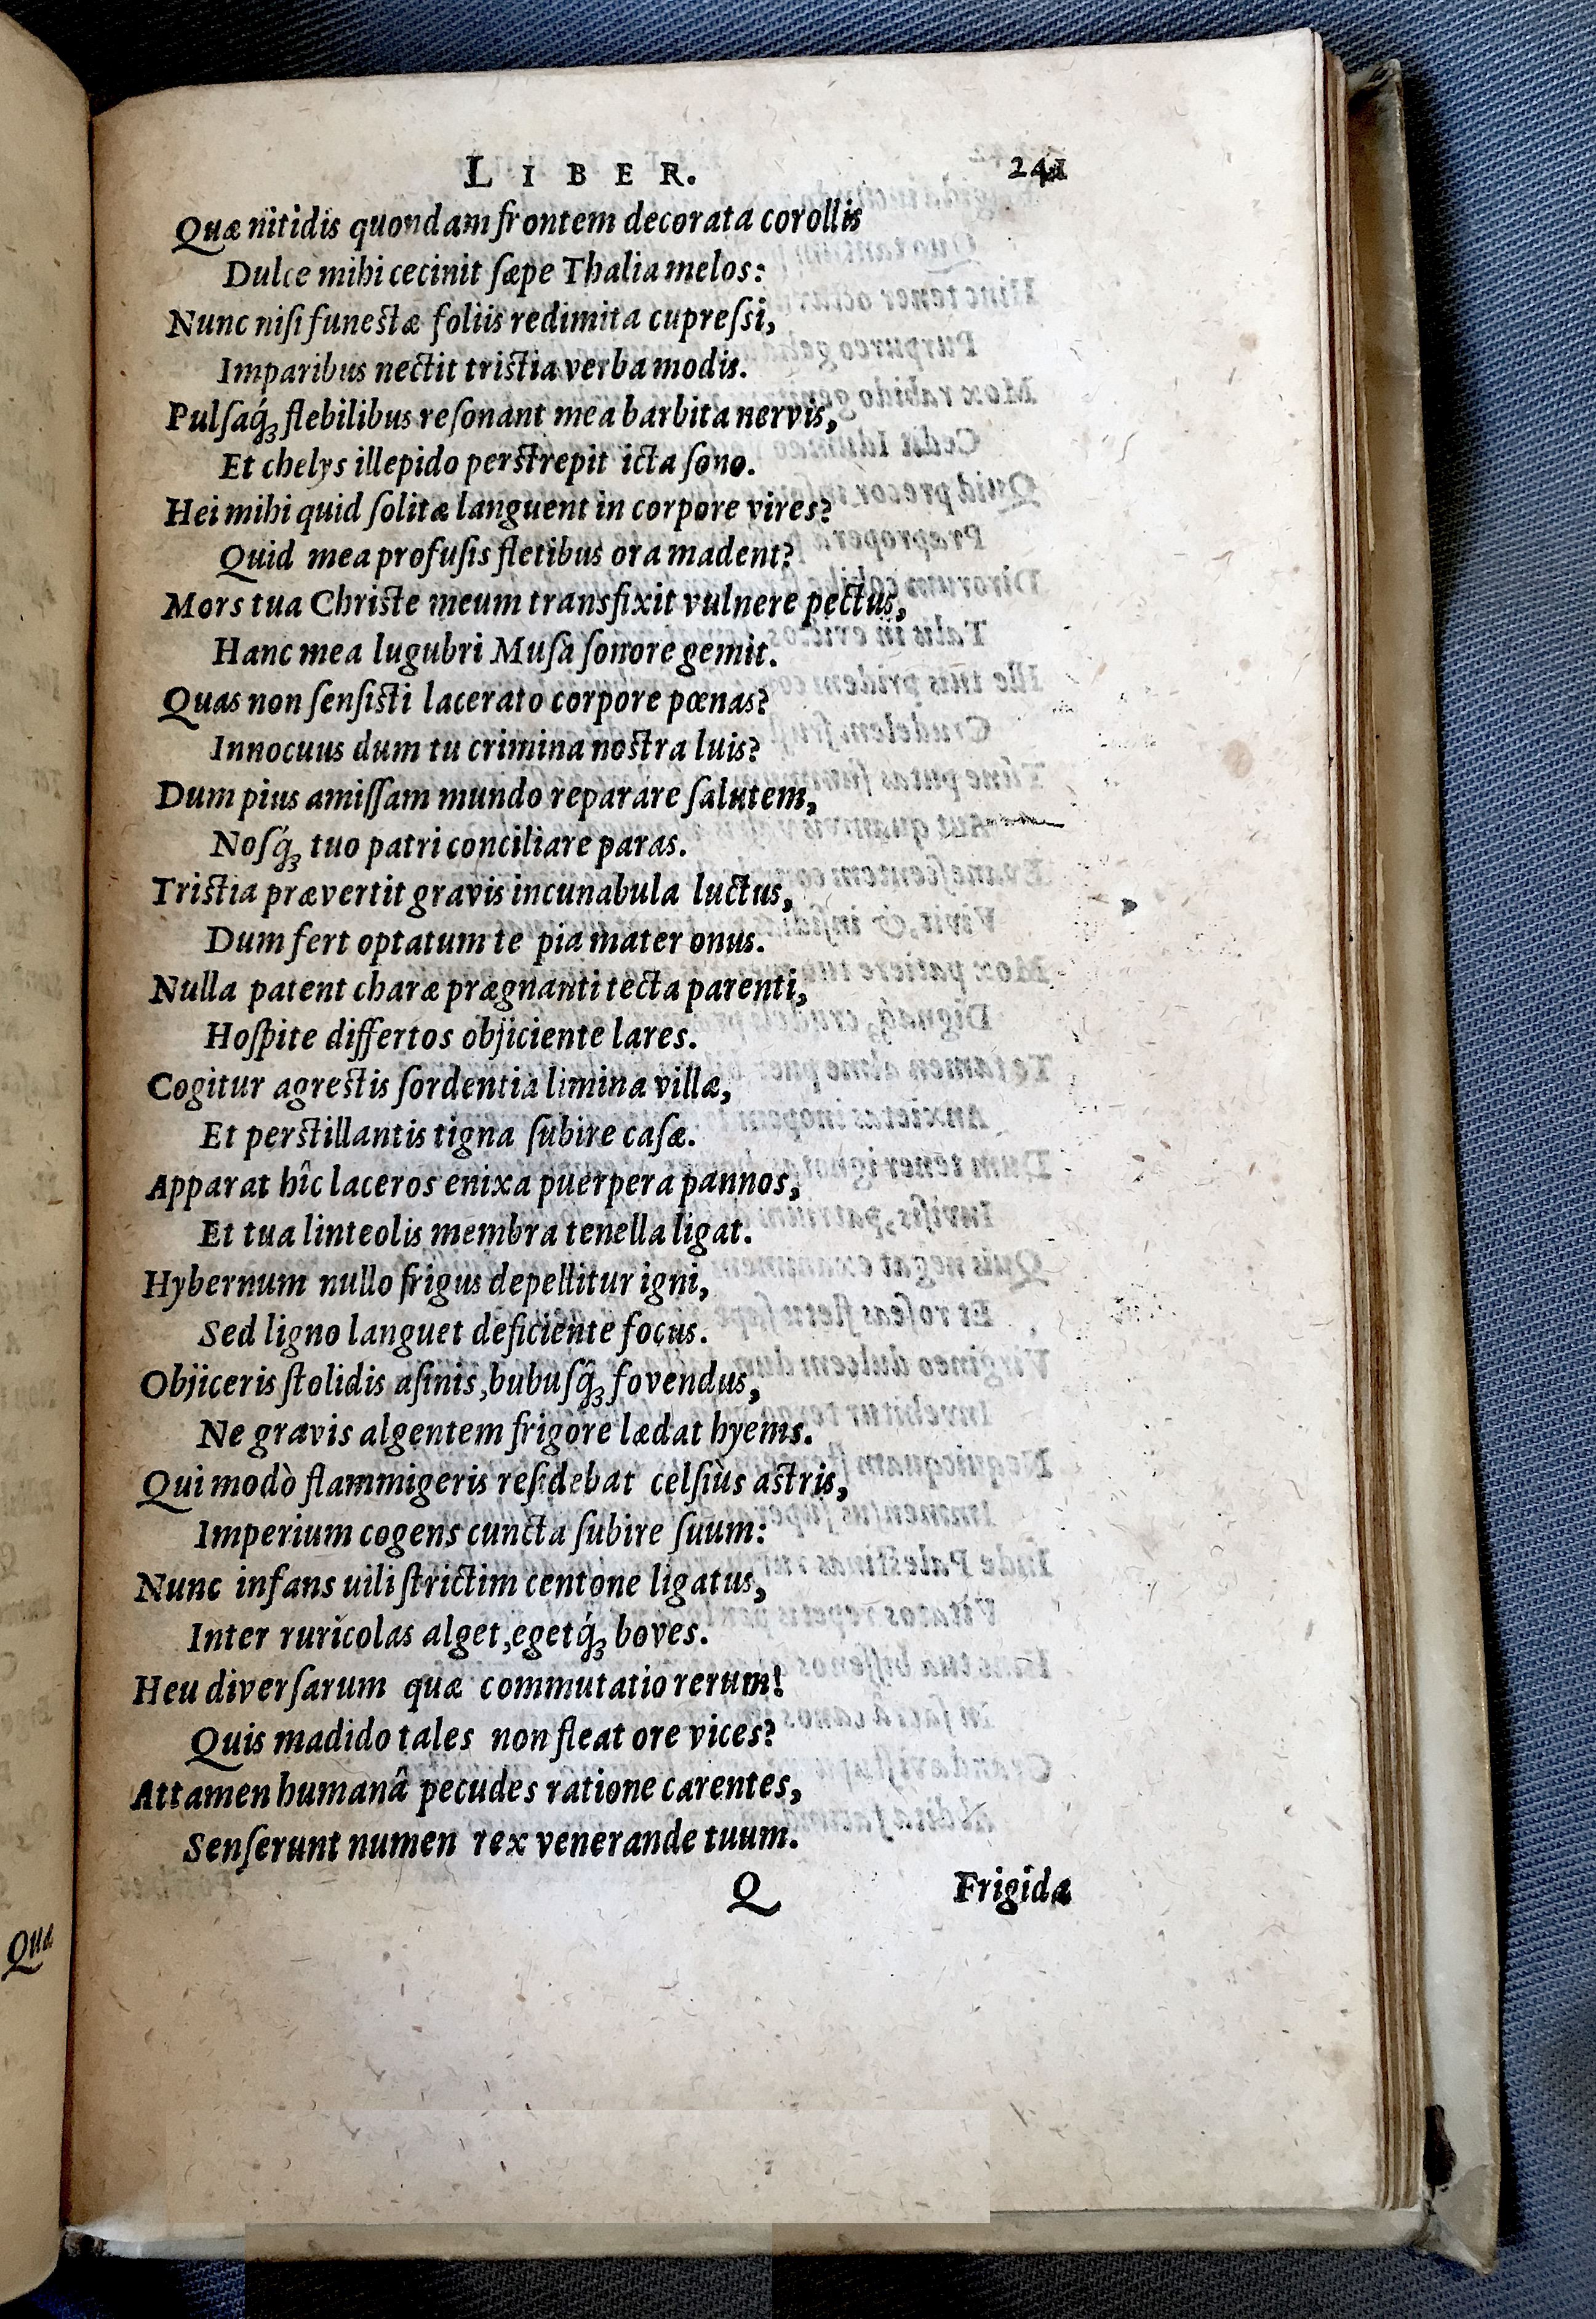 LIBER. 241
Quæ nitidis quondam frontem decorata corollis
Dulce mihi cecinit ſæpe Thalia melos:
Nunc niſi funeſtæ foliis redimita cupreſſi,
Imparibus nectit triſtia verba modis.
Pulſaq́ꝫ flebilibus reſonant mea barbita nervis,
Et chelys illepido perſtrepit icta ſono.
Hei mihi quid ſolitæ languent in corpore vires?
Quid mea profuſis fletibus ora madent?
Mors tua Chriſte meum transfixit vulnere pectus,
Hanc mea lugubri Muſa ſonore gemit.
Quas non ſenſiſti lacerato corpore pœnas?
Innocuus dum tu crimina noſtra luis?
Dum pius amiſſam mundo reparare ſalutem,
Noſq́ꝫ tuo patri conciliare paras.
Triſtia prævertit gravis incunabula luctus,
Dum fert optatum te pia mater onus.
Nulla patent charæ prægnanti tecta parenti,
Hoſpite differtos objiciente lares.
Cogitur agreſtis ſordentia limina villæ,
Et perſtillantis tigna ſubire caſæ.
Apparat hîc laceros enixa puerpera pannos,
Et tua linteolis membra tenella ligat.
Hybernum nullo frigus depellitur igni,
Sed ligno languet deficiente focus.
Objiceris ſtolidis aſinis, bubuſq́ꝫ fovendus,
Ne gravis algentem frigore lædat hyems.
Qui modò flammigeris reſidebat celſiùs aſtris,
Imperium cogens cuncta ſubire ſuum:
Nunc infans uili ſtrictim centone ligatus,
Inter ruricolas alget, egetq́ꝫ boves.
Heu diverſarum quæ commutatio rerum!
Quis madido tales non fleat ore vices?
Attamen humanâ pecudes ratione carentes,
Senſerunt numen rex venerande tuum.
Q Frigidæ